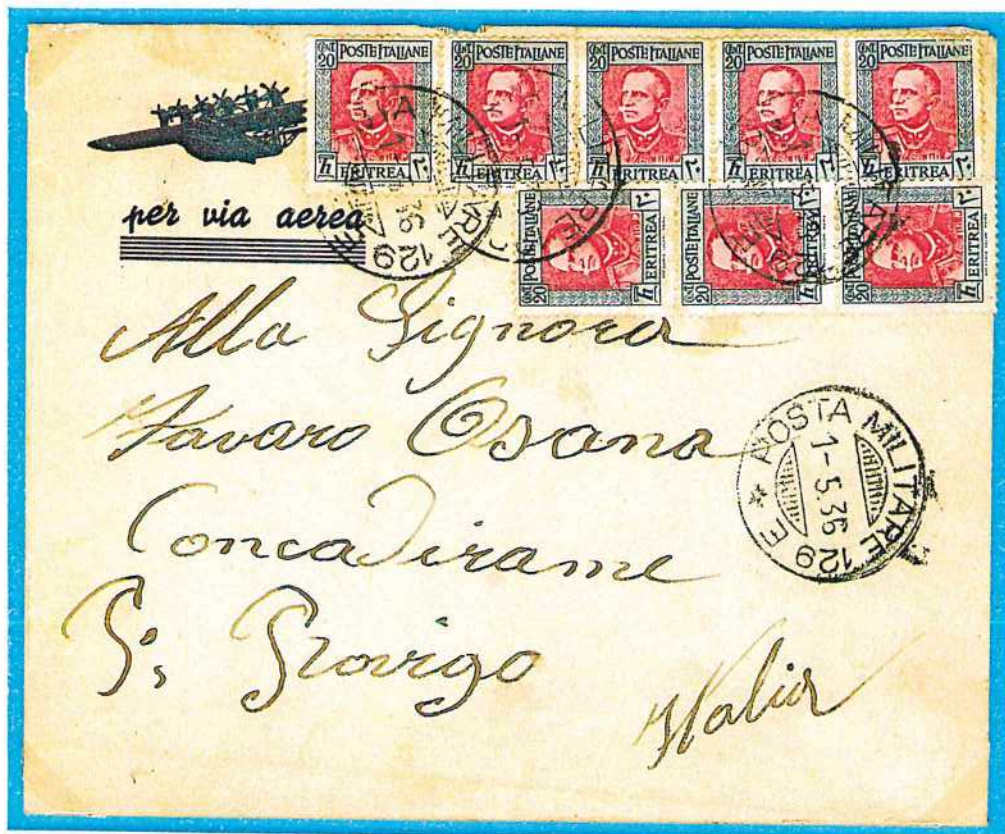 CENT. 20 POSTE ITALIANE ERITREA ٢٠
CENT. 20 POSTE ITALIANE ERITREA ٢٠
CENT. 20 POSTE ITALIANE ERITREA ٢٠
CENT. 20 POSTE ITALIANE ERITREA ٢٠
CENT. 20 POSTE ITALIANE ERITREA ٢٠
CENT. 20 POSTE ITALIANE ERITREA ٢٠
CENT. 20 POSTE ITALIANE ERITREA ٢٠
CENT. 20 POSTE ITALIANE ERITREA ٢٠
per via aerea
Alla Signora
Favaro Osana
Concadirame
P. Rovigo
Italia
POSTA MILITARE 129 E
1-5.36